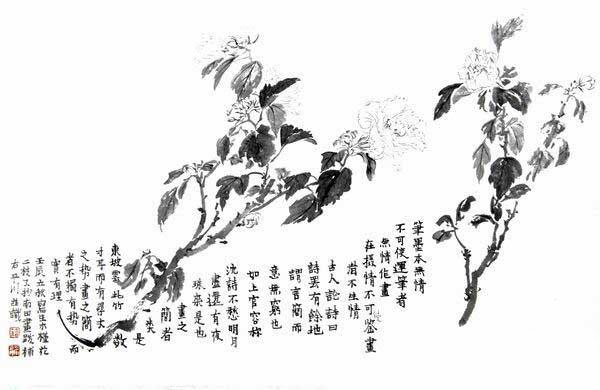 筆墨本無情
不可使運筆者
無情作畫
在摄情不可鉴畫
者不生情
古人論詩曰
詩罢有餘地
謂言簡而
意無窮也
如上官容称
沈詩不愁明月
盡還有夜
珠來是也
畫之
簡者
类
是
東坡雲此竹數
寸耳而有尋丈
之势畫之簡
者不獨有势而
實有理
壬辰立秋寫生木槿花
二枝又抄南田畫跋補
右